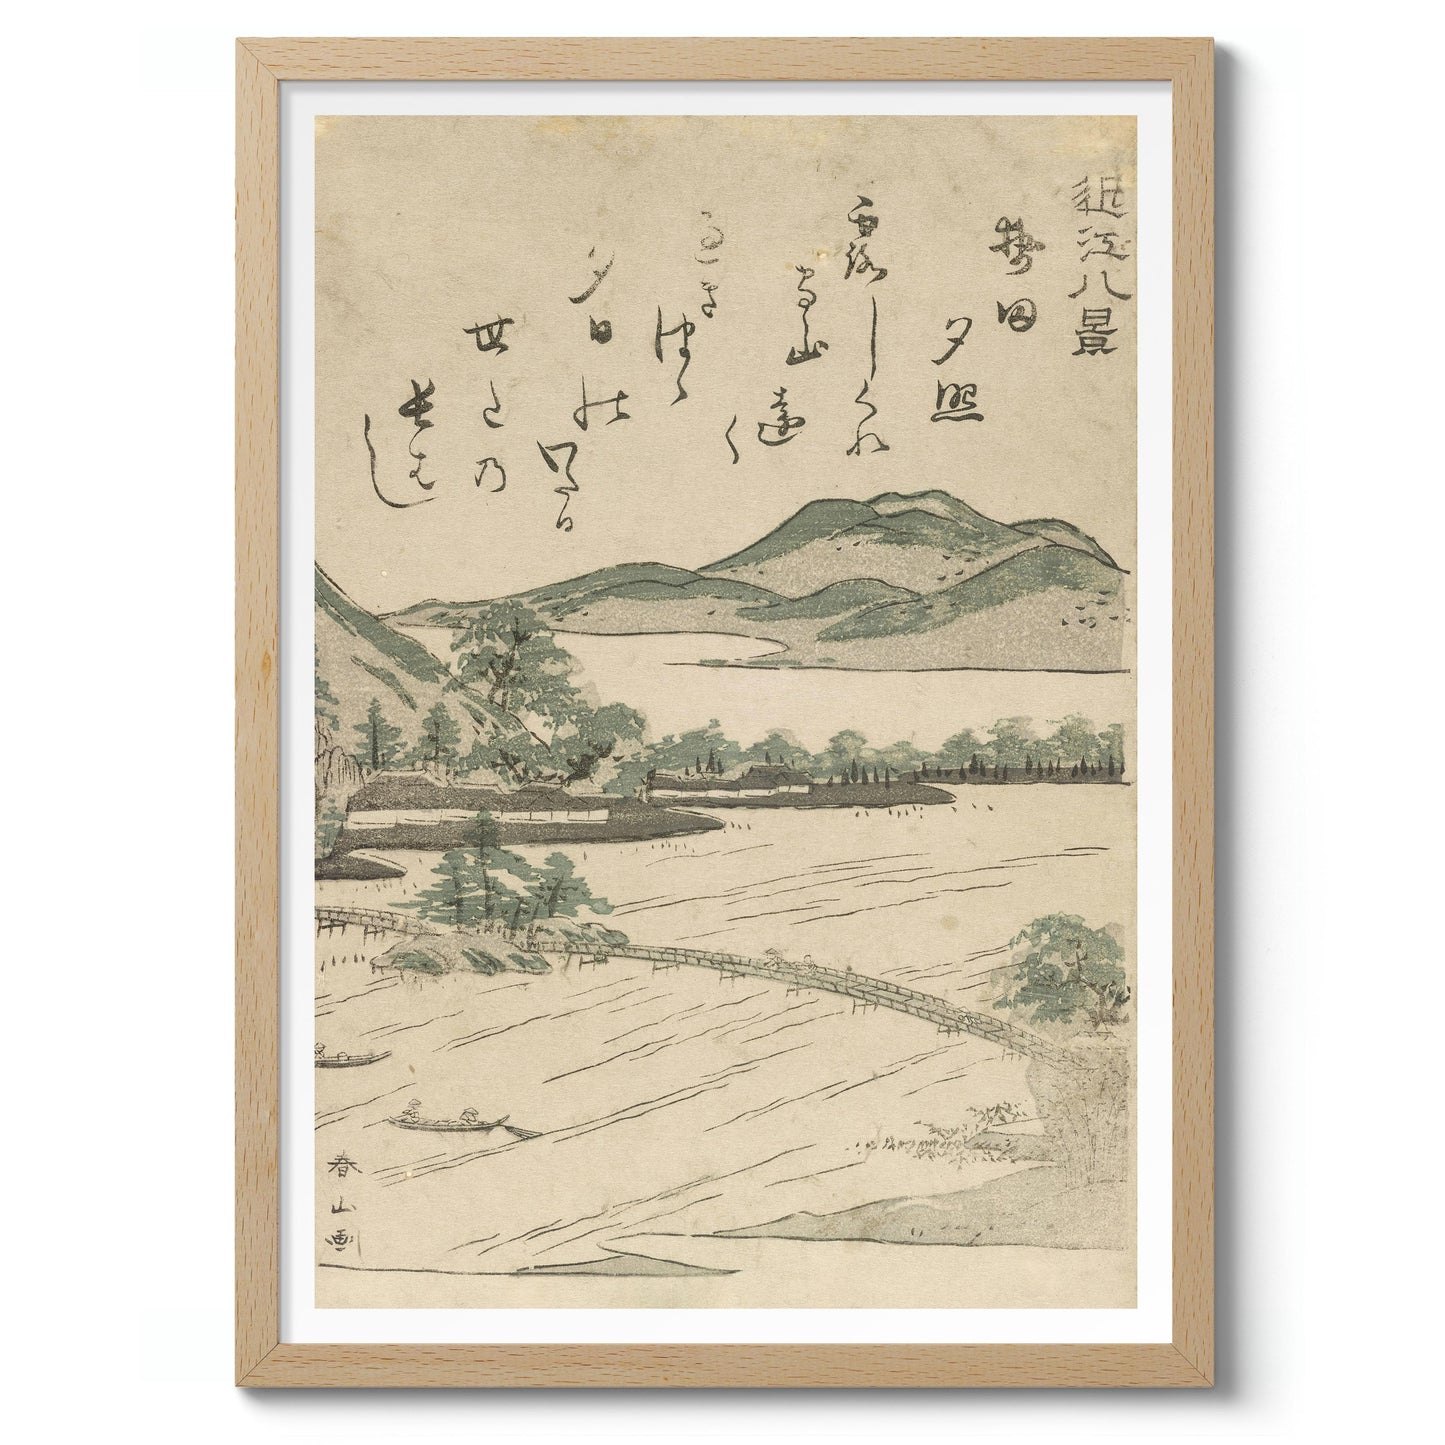 近江八景
勢田
夕照
露しくれ
守山遠
く
すき
きつゝ
夕日の
わたる
世たの
長はし
春山画